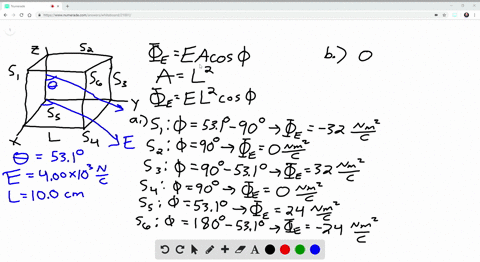 Numerade
Z
S₂
S₁
S₆
S₃
θ
Y
S₅
X
L
S₄
E
θ = 53.1°
E = 4.00×10³ N/C
L = 10.0 cm
Φ_E = EA cos ϕ
A = L²
Φ_E = EL² cos ϕ
a.) S₁: ϕ = 53.1° - 90° → Φ_E = -32 Nm²/C
S₂: ϕ = 90° → Φ_E = 0 Nm²/C
S₃: ϕ = 90° - 53.1° → Φ_E = 32 Nm²/C
S₄: ϕ = 90° → Φ_E = 0 Nm²/C
S₅: ϕ = 53.1° → Φ_E = 24 Nm²/C
S₆: ϕ = 180° - 53.1° → Φ_E = -24 Nm²/C
b.) 0